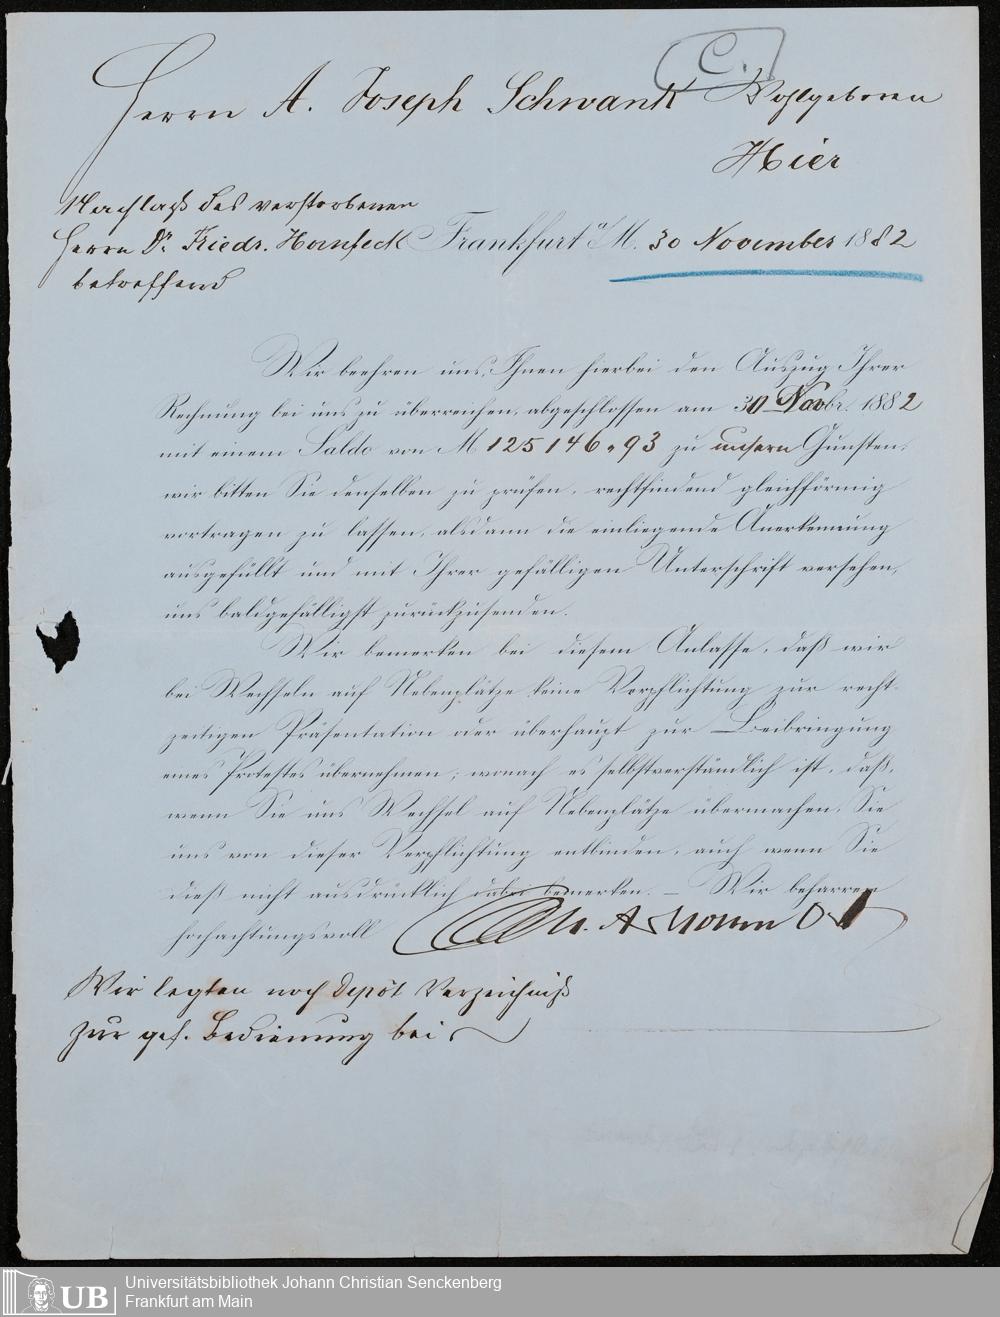 C.
Herrn A. Joseph Schwank Wohlgeboren
Hier
Nachlaß des verstorbenen
Herrn Dr Friedr. Hornfeck
betreffend
Frankfurt a/M. 30 November 1882
Wir beehren uns, Ihnen hierbei den Auszug Ihrer
Rechnung bei uns zu überreichen, abgeschlossen am 30 Novbr. 1882
mit einem Saldo von M 125146.93 zu unsern Gunsten;
wir bitten Sie denselben zu prüfen, rechtfindend gleichförmig
vortragen zu lassen, alsdann die einliegende Anerkennung
ausgefüllt und mit Ihrer gefälligen Unterschrift versehen,
uns baldgefälligst zurückzusenden.
Wir bemerken bei diesem Anlasse, daß wir
bei Wechseln auf Nebenplätze keine Verpflichtung zur recht-
zeitigen Präsentation oder überhaupt zur Beibringung
eines Protestes übernehmen; wonach es selbstverständlich ist, daß,
wenn Sie uns Wechsel auf Nebenplätze übermachen, Sie
uns von dieser Verpflichtung entbinden, auch wenn Sie
dieß nicht ausdrücklich dabei bemerken. — Wir beharren
hochachtungsvoll
Wir legten noch Depôt Verzeichniß
zur gef. Bedienung bei.
Universitätsbibliothek Johann Christian Senckenberg
Frankfurt am Main
UB